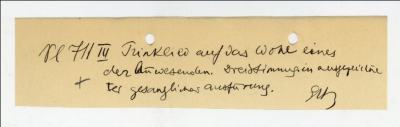 Kl 711 IV Trinklied auf das Wohl eines
der Anwesenden. Dreistimmig in ausgezeichne
+ ter gesanglicher ausführung.